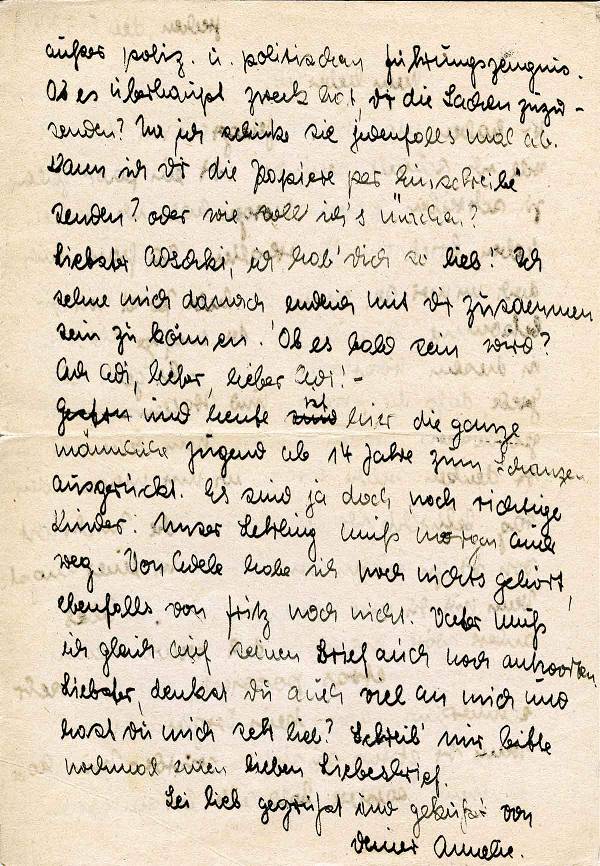 außer poliz. u. politischen Führungszeugnis.
Ob es überhaupt zweck hat, dir die Sachen zuzu-
senden? Na ich schicke sie jedenfalls mal ab.
Kann ich dir die Papiere per Einschreibe'
senden? oder wie soll ich's machen?
Liebster Adschki, ich hab' dich so lieb! Ich
sehne mich danach endlich mit dir zusammen
sein zu können! Ob es bald sein wird?
Ach Adi, lieber, lieber Adi! -
Gestern und heute sind ist hier die ganze
männliche Jugend ab 14 Jahre zum Schanzen
ausgerückt. Es sind ja doch noch richtige
Kinder. Unser Lehrling muß morgen auch
weg. Von Adele habe ich noch nichts gehört,
ebenfalls von Fritz noch nicht. Vater muß
ich gleich auf seinen Brief auch noch antworten.
Liebster, denkst du auch viel an mich und
hast du mich sehr lieb? Schreib' mir bitte
nochmal einen lieben Liebesbrief.
Sei lieb gegrüßt und geküßt von
deiner Annelie.